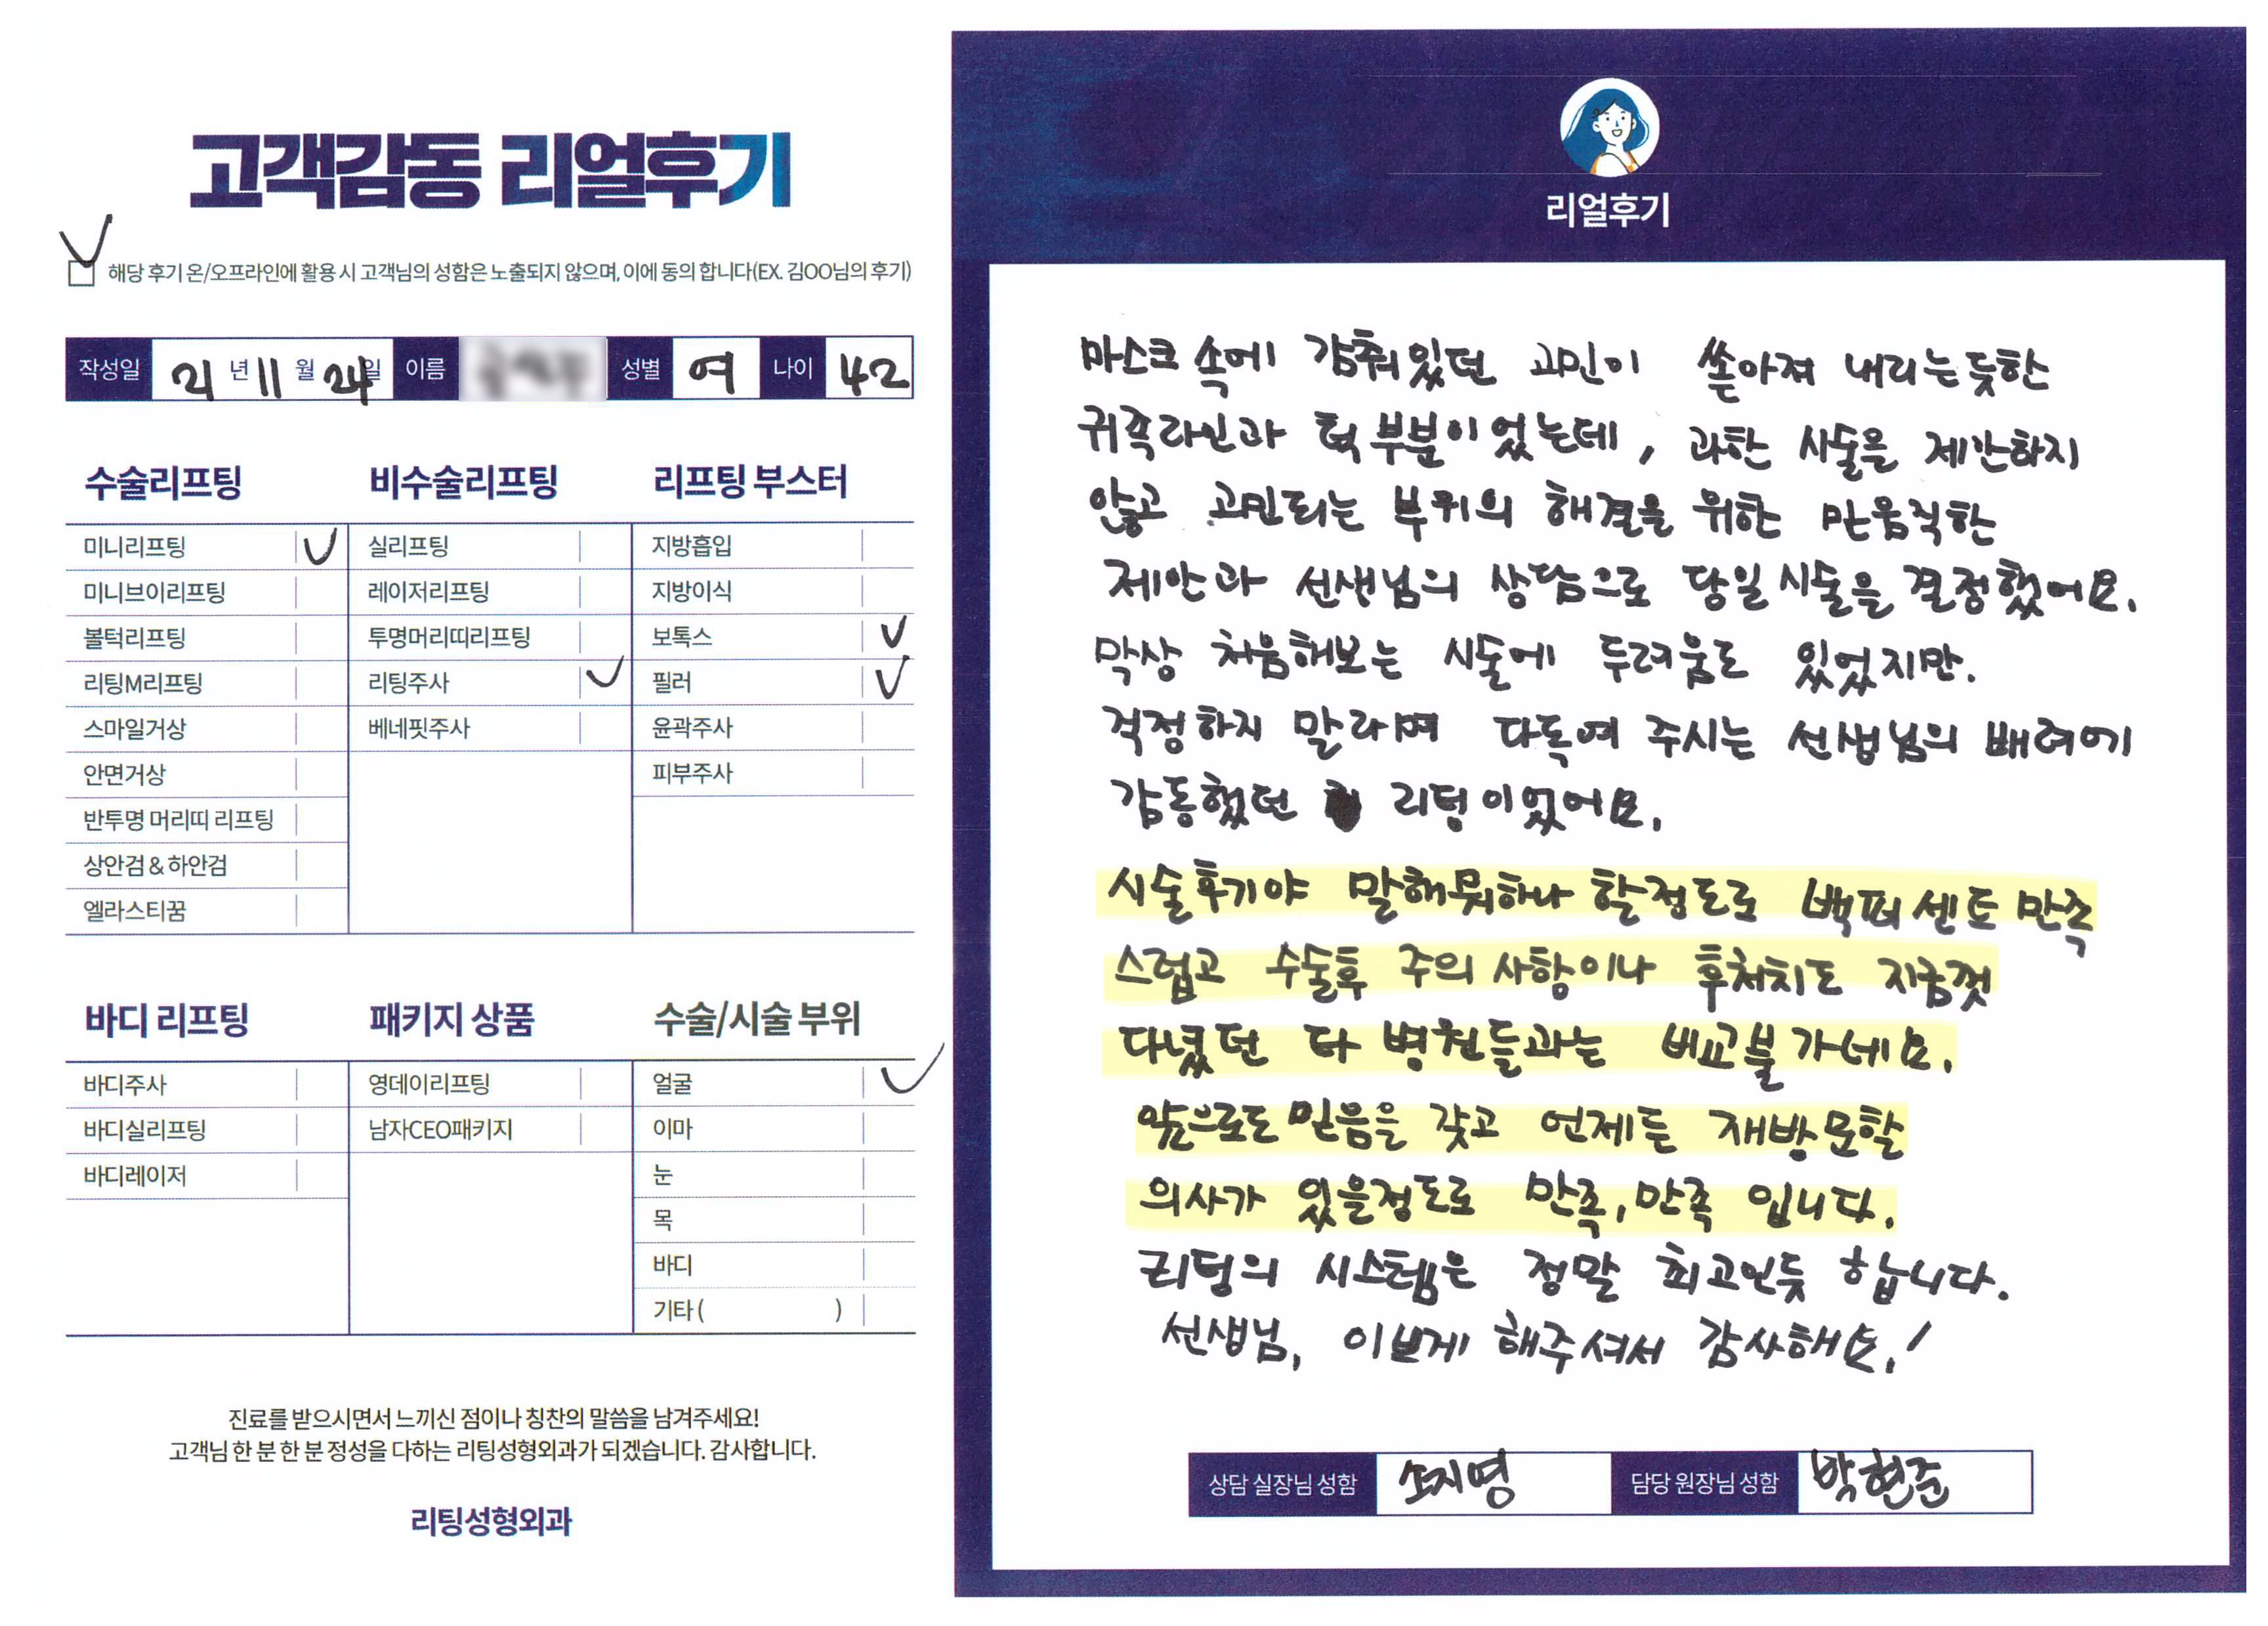 고객감동 리얼후기
해당 후기 온/오프라인에 활용 시 고객님의 성함은 노출되지 않으며, 이에 동의 합니다(EX. 김OO님의 후기)
작성일 21 년 11 월 24 일 이름 성별 여 나이 42
수술리프팅
미니리프팅
미니브이리프팅
볼턱리프팅
리팅M리프팅
스마일거상
안면거상
반투명 머리띠 리프팅
상안검 & 하안검
엘라스티꿈
비수술리프팅
실리프팅
레이저리프팅
투명머리띠리프팅
리팅주사
베네핏주사
리프팅 부스터
지방흡입
지방이식
보톡스
필러
윤곽주사
피부주사
바디 리프팅
바디주사
바디실리프팅
바디레이저
패키지 상품
영데이리프팅
남자CEO패키지
수술/시술 부위
얼굴
이마
눈
목
바디
기타 ( )
진료를 받으시면서 느끼신 점이나 칭찬의 말씀을 남겨주세요!
고객님 한 분 한 분 정성을 다하는 리팅성형외과가 되겠습니다. 감사합니다.
리팅성형외과
리얼후기
마스크 속에 감춰있던 고민이 쏟아져 내리는듯한
귀쪽라인과 턱 부분이었는데, 과한 시술을 제안하지
않고 고민되는 부위의 해결을 위한 믿음직한
제안과 선생님의 상담으로 당일 시술을 결정했어요.
막상 처음해보는 시술에 두려움도 있었지만.
걱정하지 말라며 다독여 주시는 선생님의 배려에
감동했던 리팅이었어요.
시술후기야 말해뭐하나 할정도로 백퍼센트 만족
스럽고 수술후 주의 사항이나 후처치도 지금껏
다녔던 타 병원들과는 비교불가네요.
앞으로도 믿음을 갖고 언제든 재방문할
의사가 있을정도로 만족, 만족 입니다.
리팅의 시스템은 정말 최고인듯 합니다.
선생님, 이쁘게 해주셔서 감사해요.!
상담 실장님 성함 소지영 담당 원장님 성함 박현준